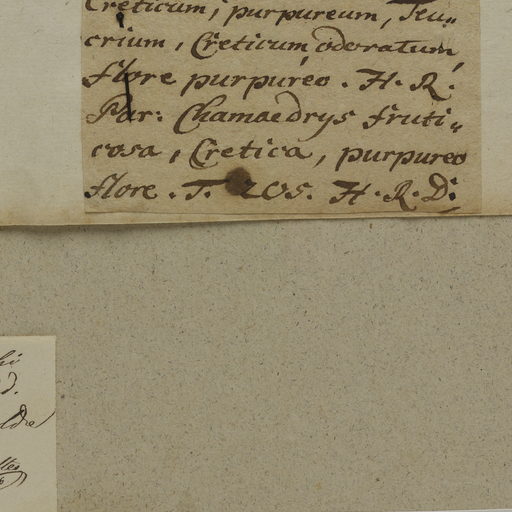 Creticum, purpureum, Teu„
crium, Creticum odoratum,
flore purpureo. H. R.
Par: Chamaedrys fruti„
cosa, Cretica, purpureo
flore. T. 205. H. R. D: